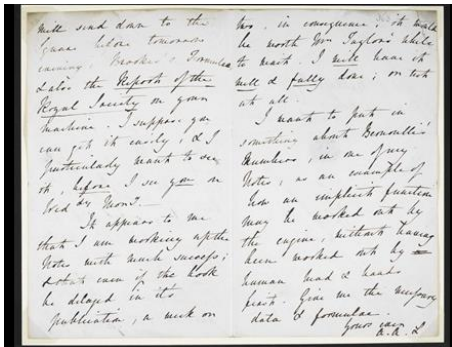 will send down to the
before tomorrow
evening, Brooker's Formulae,
& also the Reports of the
Royal Society on your
machine. I suppose you
can get it easily, & I
particularly want to see
it, before I see you on
Wed dy Morn g.
It appears to me
that I am working up the
Notes with much success;
& that even if the book
be delayed in its
publication, a week or
two, in consequence, it would
be worth Mr Taylor's while
to wait. I will have it
well & fully done; or not
at all.
I want to put in
something about Bernoulli's
Numbers, in one of my
Notes, as an example of
how an implicit function
may be worked out by
the engine, without having
been worked out by
human head & hands
first. Give me the necessary
data & formulae.
Yours ever
A. A. L